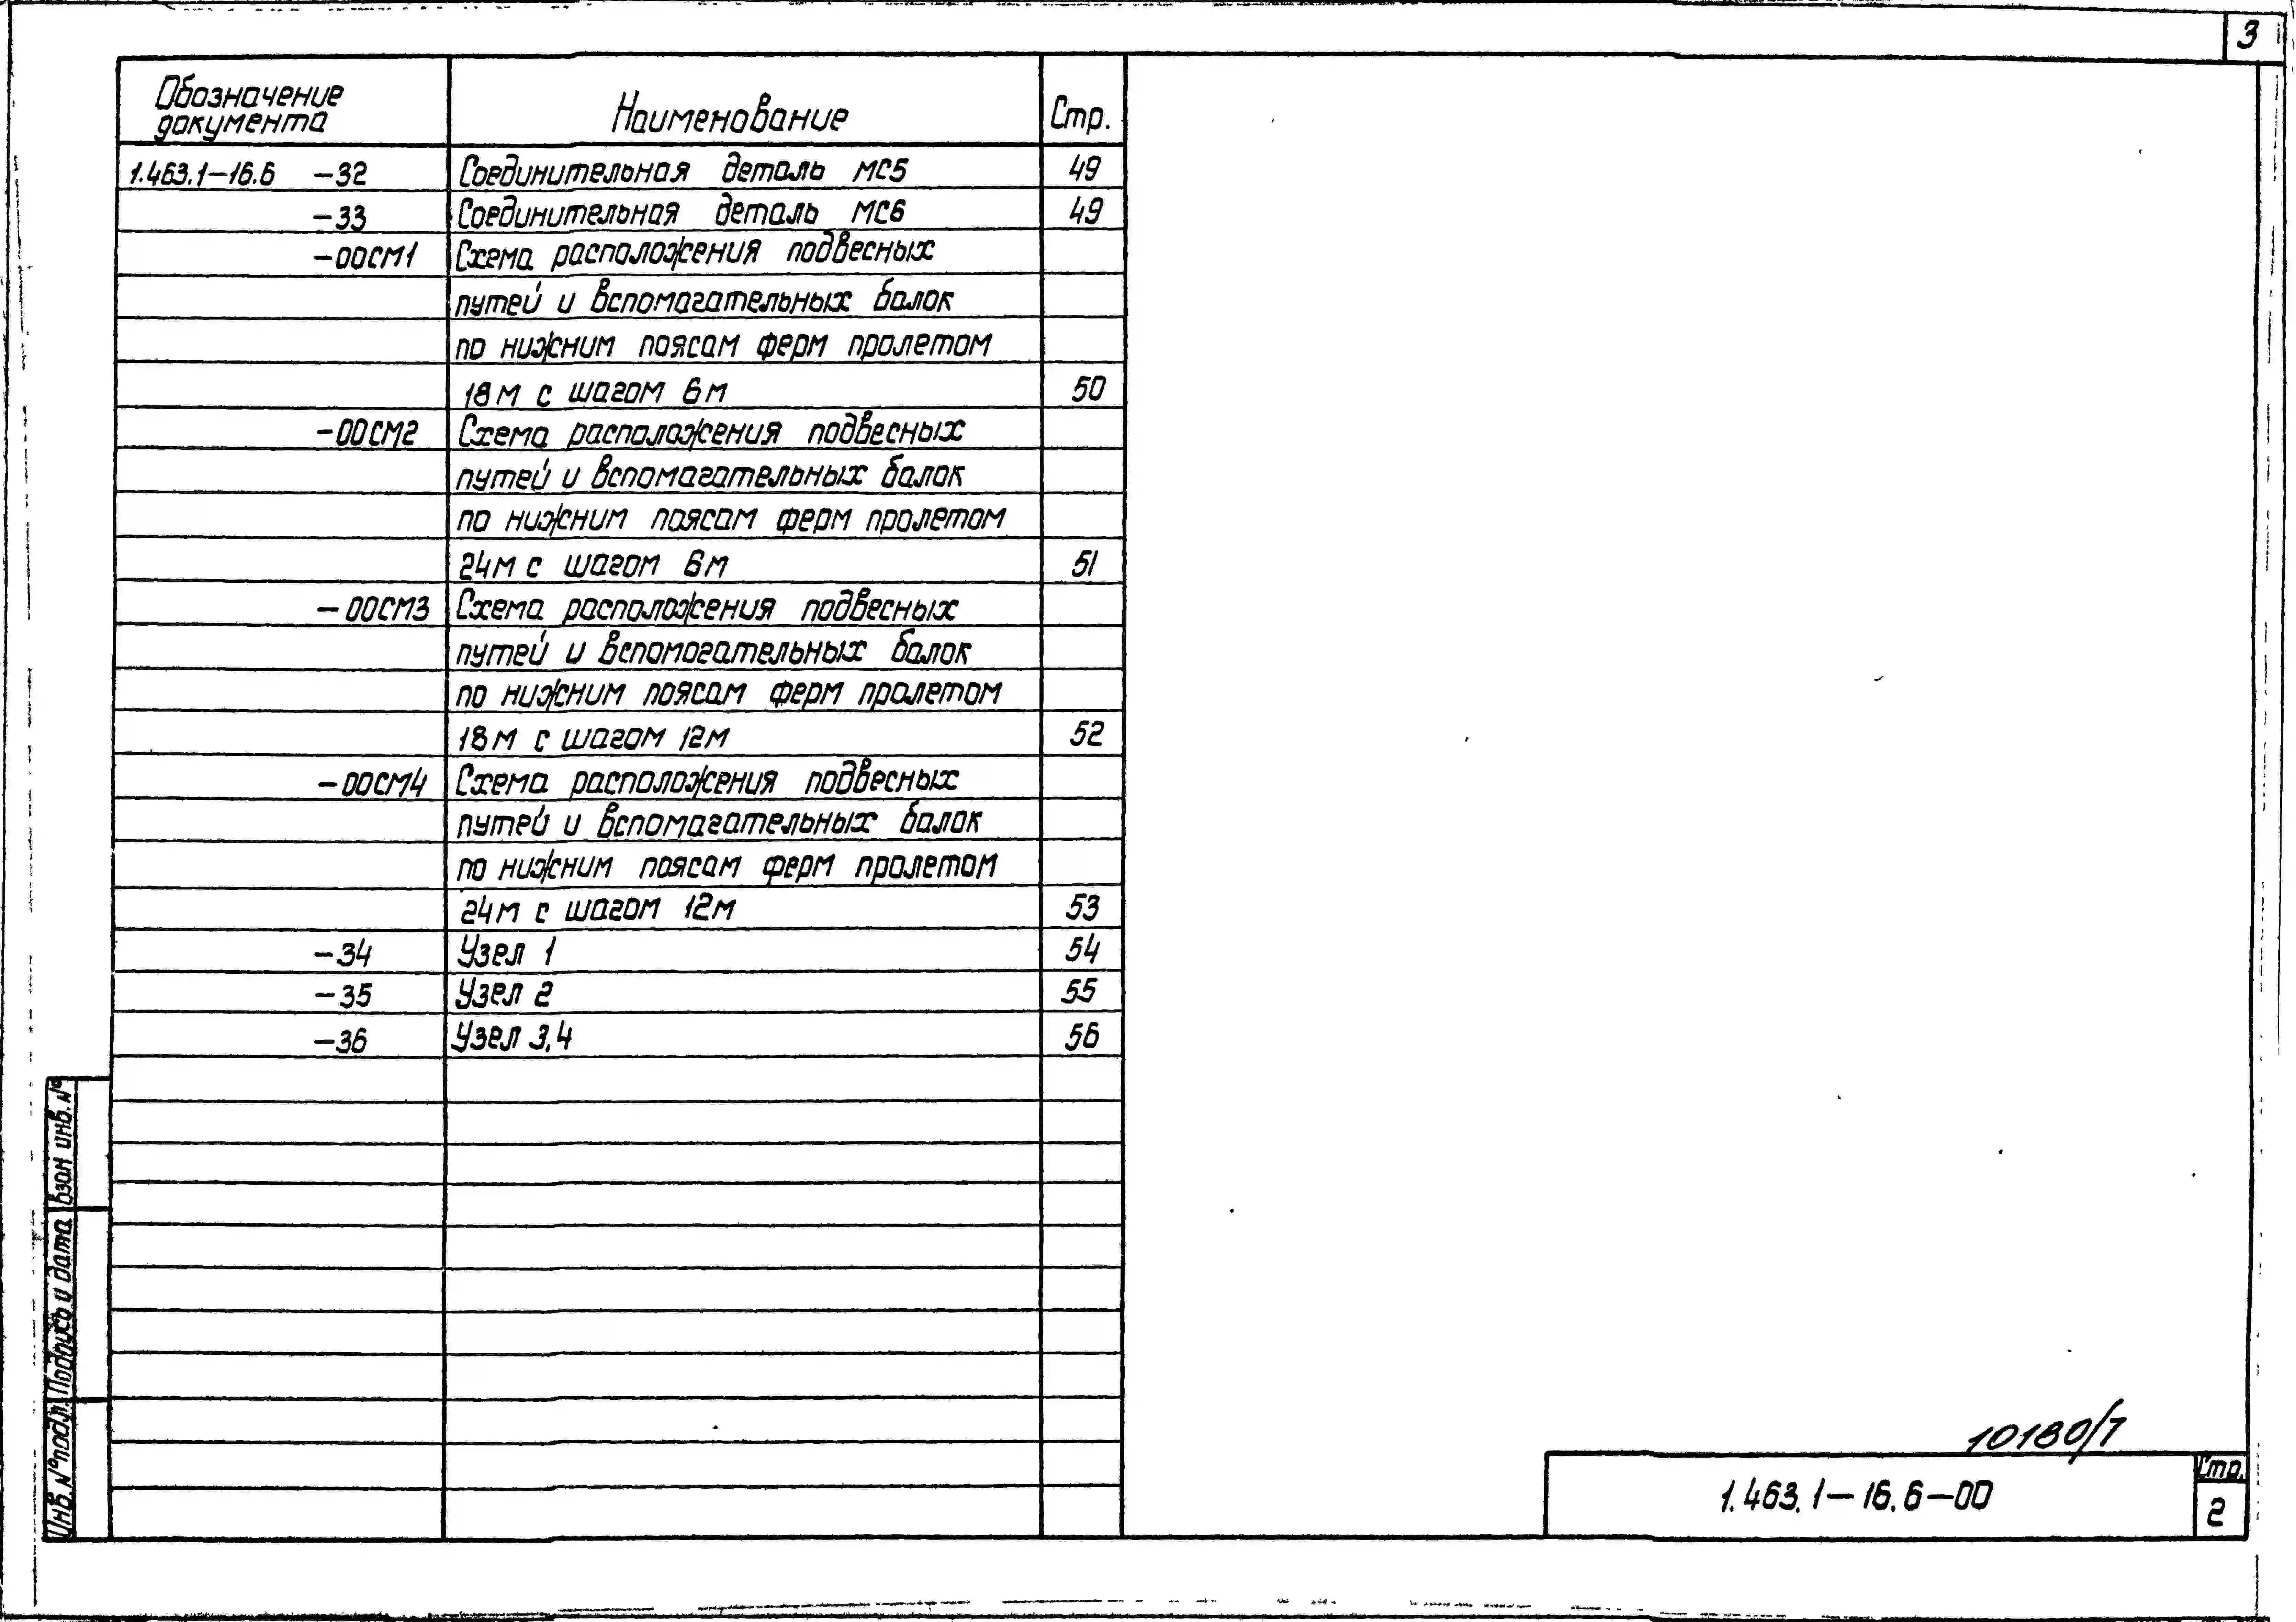 3
Обозначение документа Наименование Стр.
1.463.1-16.6 -32 Соединительная деталь МС5 49
-33 Соединительная деталь МС6 49
-00СМ1 Схема расположения подвесных
путей и вспомогательных балок
по нижним поясам ферм пролетом
18м с шагом 6м 50
-00СМ2 Схема расположения подвесных
путей и вспомогательных балок
по нижним поясам ферм пролетом
24м с шагом 6м 51
-00СМ3 Схема расположения подвесных
путей и вспомогательных балок
по нижним поясам ферм пролетом
18м с шагом 12м 52
-00СМ4 Схема расположения подвесных
путей и вспомогательных балок
по нижним поясам ферм пролетом
24м с шагом 12м 53
-34 Узел 1 54
-35 Узел 2 55
-36 Узел 3,4 56
Взам инв. №
Подпись и дата
Инв. № подл.
10180/1
1.463.1-16.6-00
Стр.
2